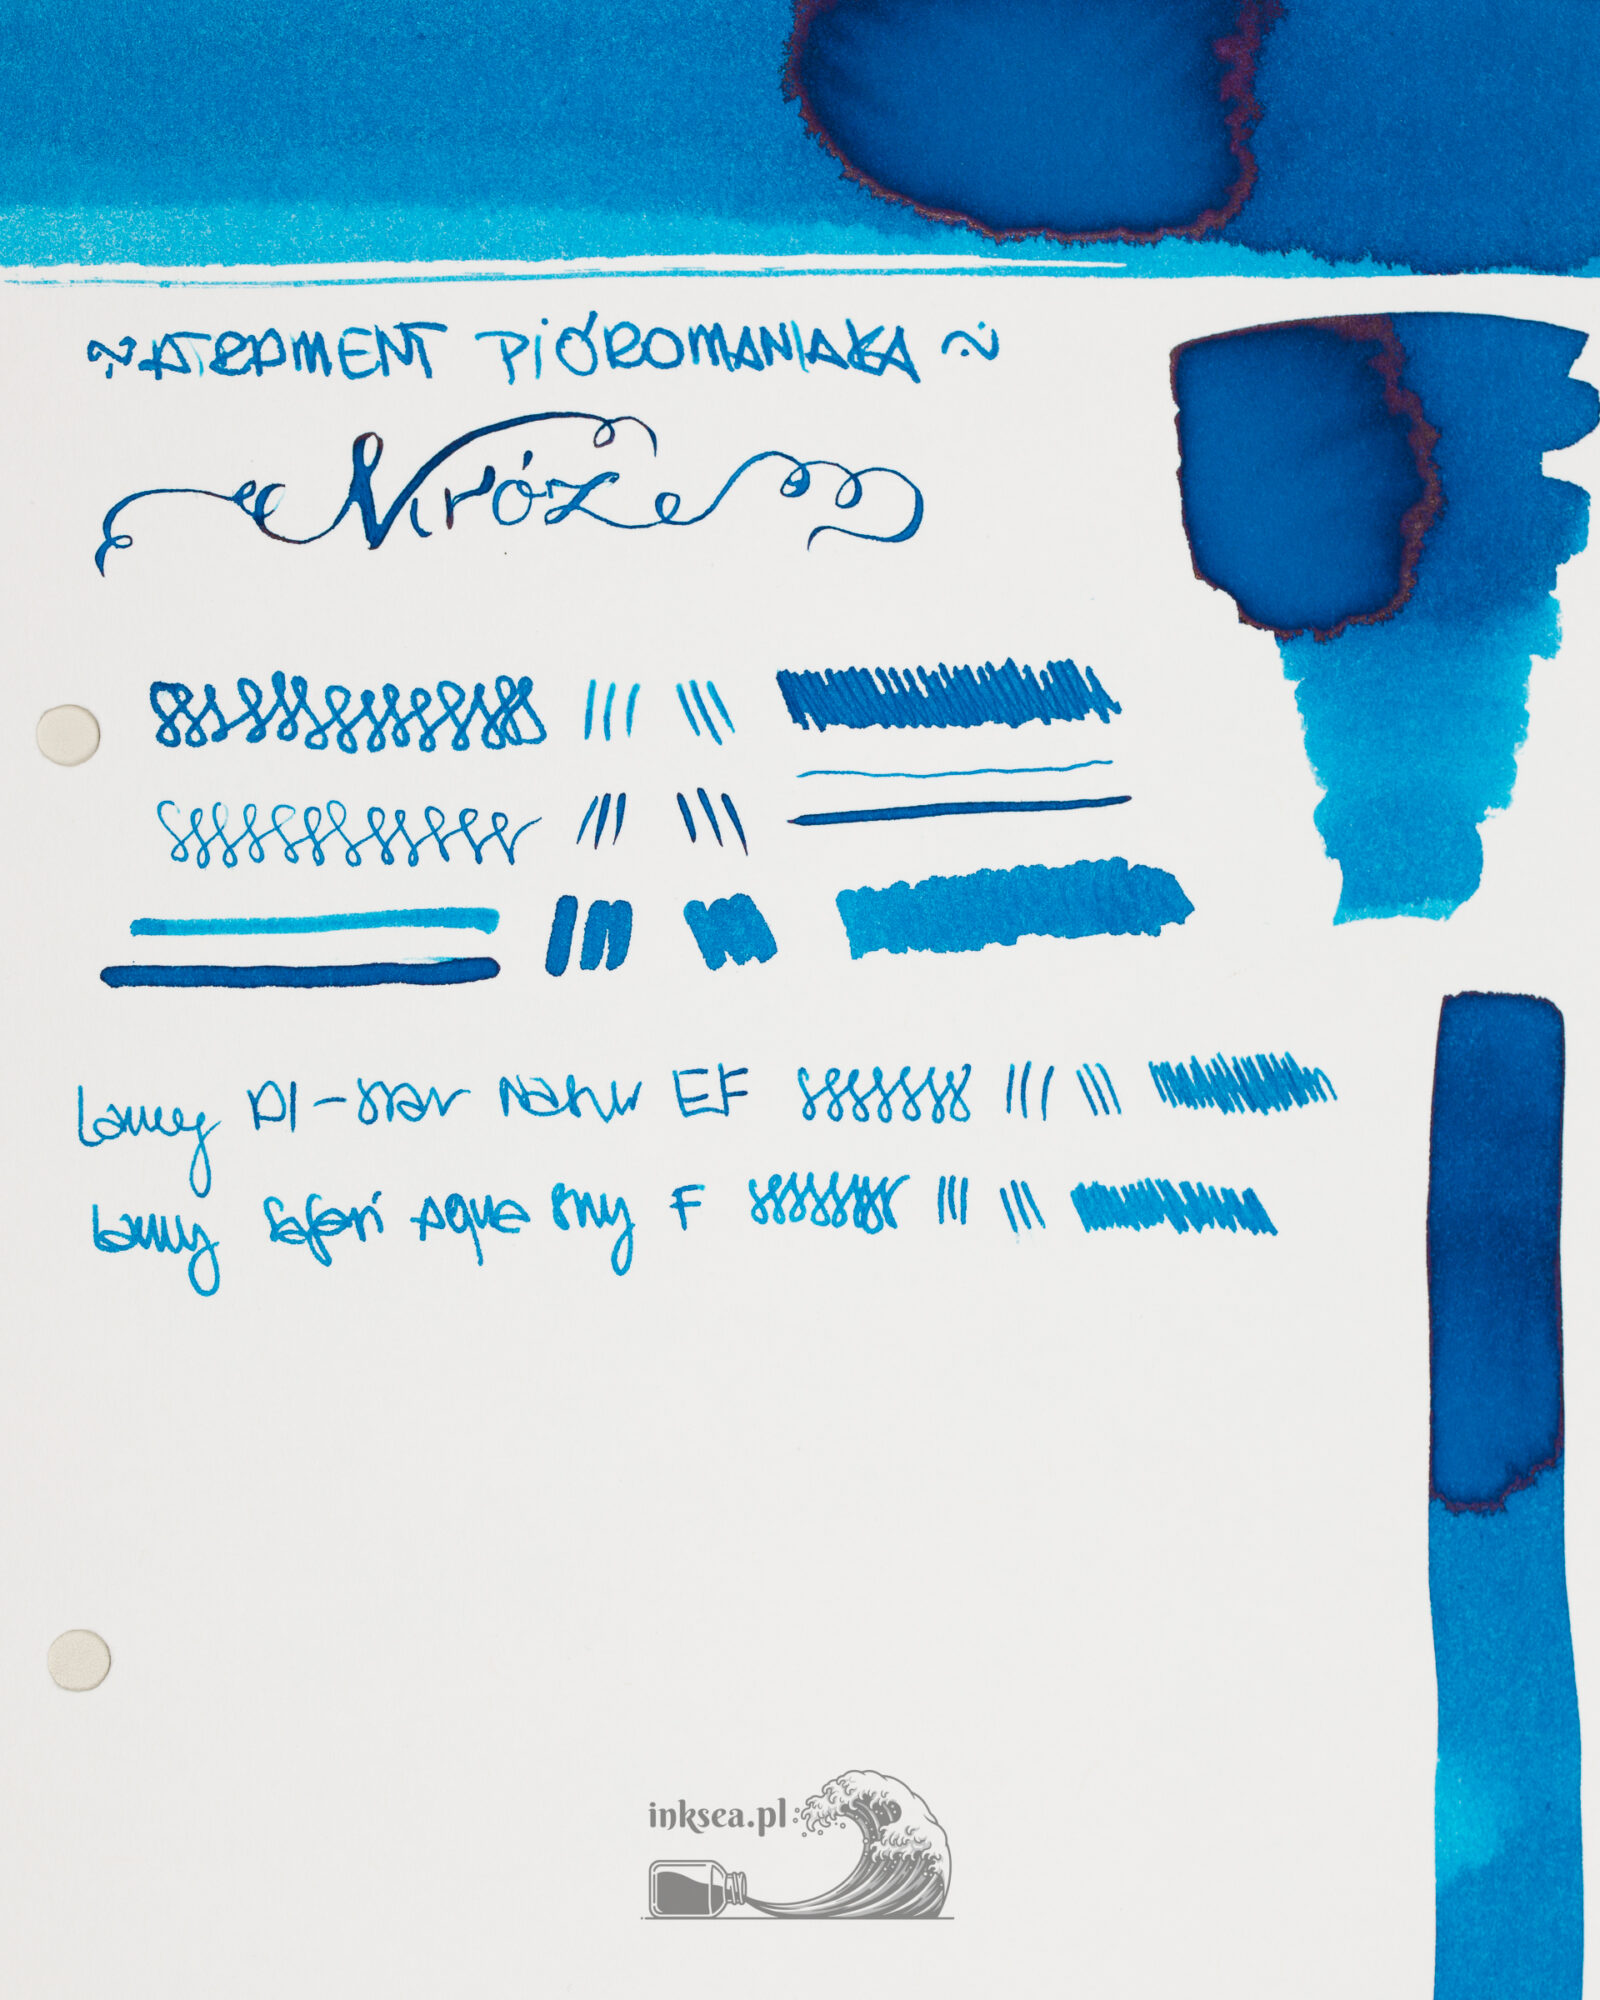 ~ATRAMENT PIÓROMANIAKA~
Mróz
Lamy Al-star EF
Lamy Safari Aqua Sky F
inksea.pl